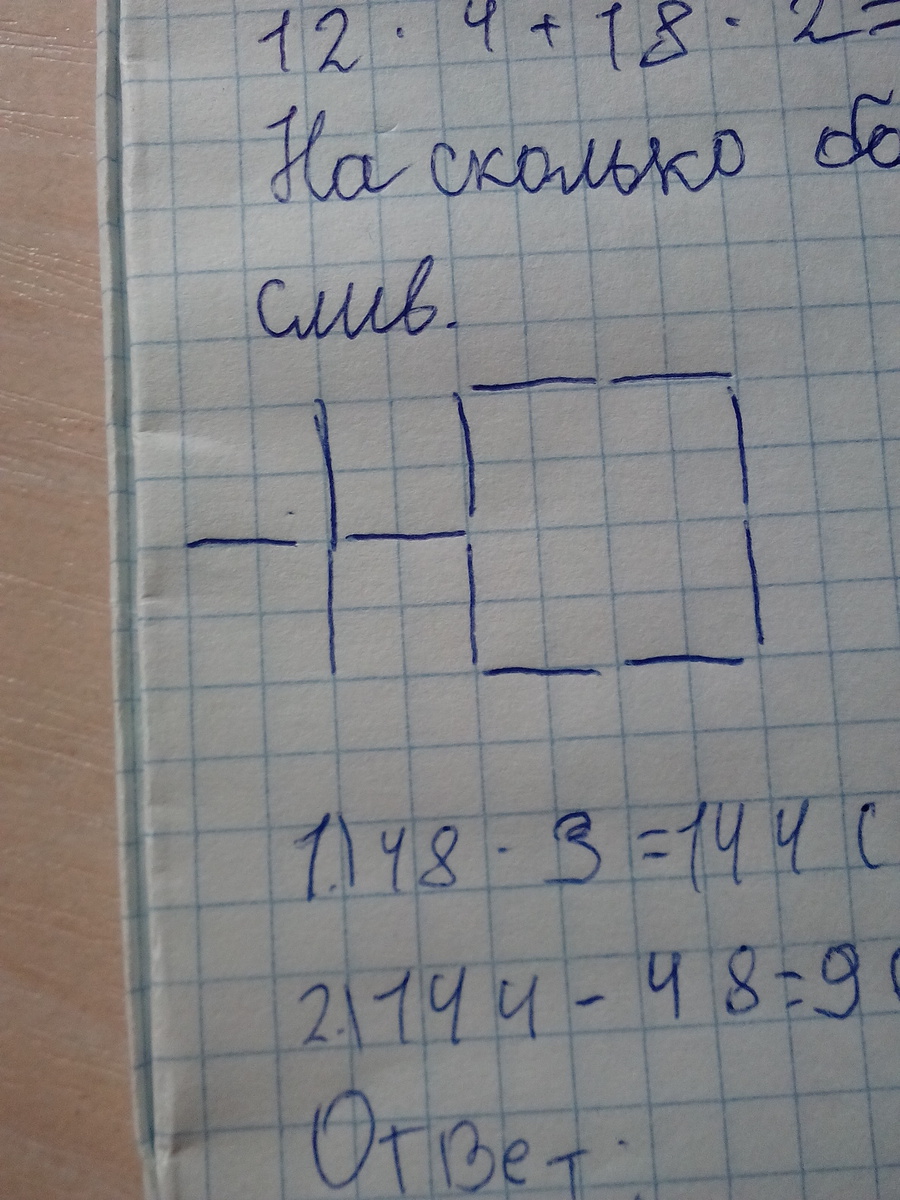 12 · 4 + 18 · 2 =
На сколько бо
слив.
1.) 48 · 3 = 144 (
2.) 144 - 48 = 9
Ответ: